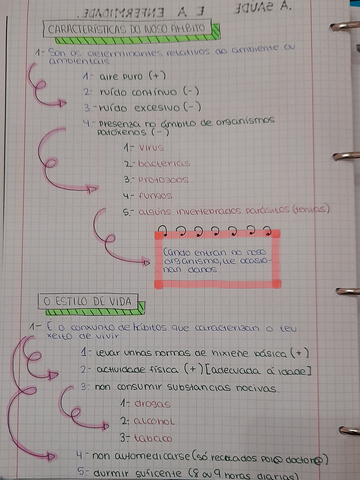 A SAÚDE E A ENFERMIDADE.
CARACTERÍSTICAS DO NOSO ÁMBITO
1- Son os determinantes relativos ao ambiente ou
ambientais
1- aire puro (+)
2- ruído continuo (-)
3- ruído excesivo (-)
4- presenza no ámbito de organismos
patóxenos (-)
1- virus
2- bacterias
3- protozoos
4- fungos
5- algúns invertebrados parásitos (tenias)
Cando entran no noso
organismo, lle ocasio-
nan danos
O ESTILO DE VIDA
1- É o conxunto de hábitos que caracterizan o teu
xeito de vivir
1- levar unhas normas de hixiene básica (+)
2- actividade física (+) [adecuada á idade]
3- non consumir substancias nocivas
1- drogas
2- alcohol
3- tabaco
4- non automedicarse (só recetados pol@ doctor@)
5- durmir suficente (8 ou 9 horas diarias)